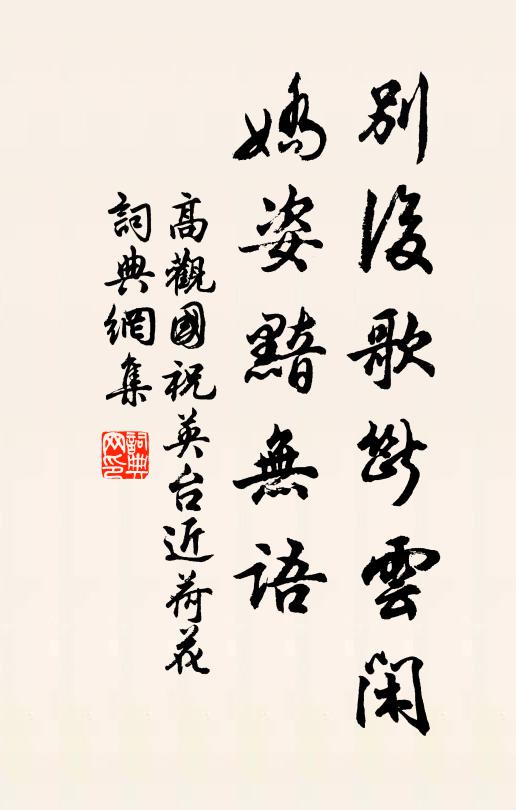 別後歌斷雲閑
嬌姿黯無語
高觀國祝英台近荷花
詞典網集
詞典網印